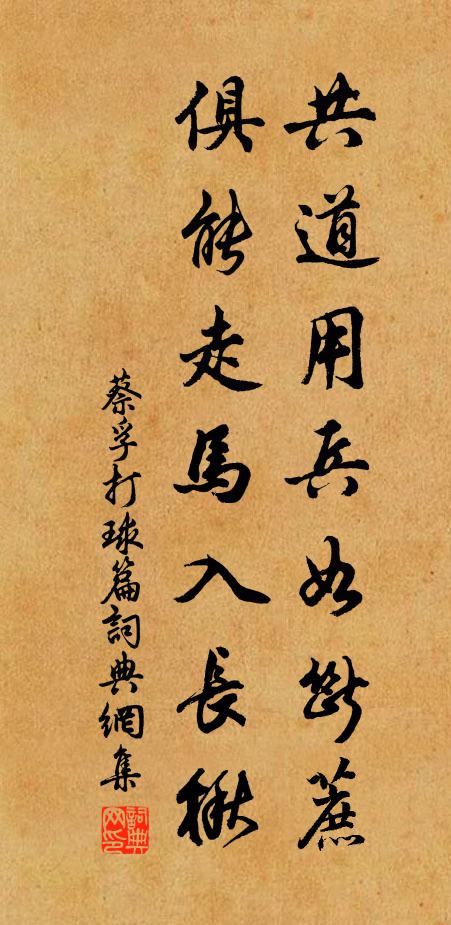 共道用兵如斷蔗
俱能走馬入長楸
蔡孚打球篇詞典網集
詞典网印